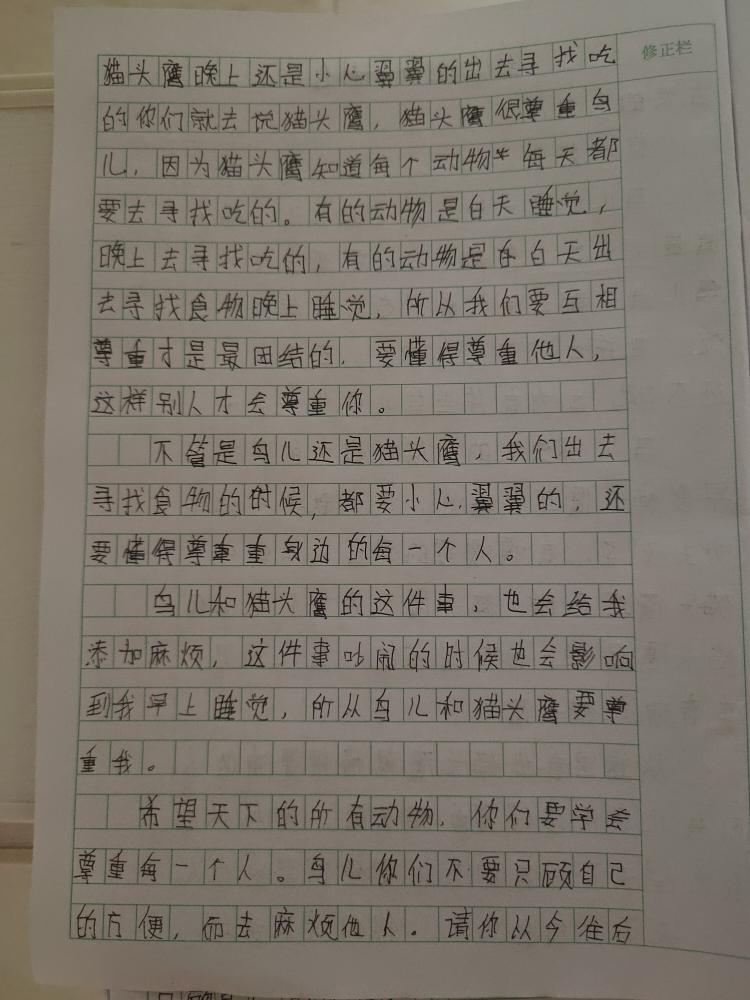 修正栏
猫头鹰晚上还是小心翼翼的出去寻找吃
的你们就去说猫头鹰，猫头鹰很尊重鸟
儿，因为猫头鹰知道每个动物每天都
要去寻找吃的。有的动物是白天睡觉，
晚上去寻找吃的，有的动物是白天出
去寻找食物晚上睡觉，所从我们要互相
尊重才是最团结的．要懂得尊重他人，
这样别人才会尊重你。
不管是鸟儿还是猫头鹰，我们出去
寻找食物的时候，都要小心翼翼的，还
要懂得尊重重身边的每一个人。
鸟儿和猫头鹰的这件事，也会给我
添加麻烦，这件事吵闹的时候也会影响
到我早上睡觉，所从鸟儿和猫头鹰要尊
重我。
希望天下的所有动物．你们要学会
尊重每一个人。鸟儿你们不要只顾自己
的方便，而去麻烦他人．请你从今往后